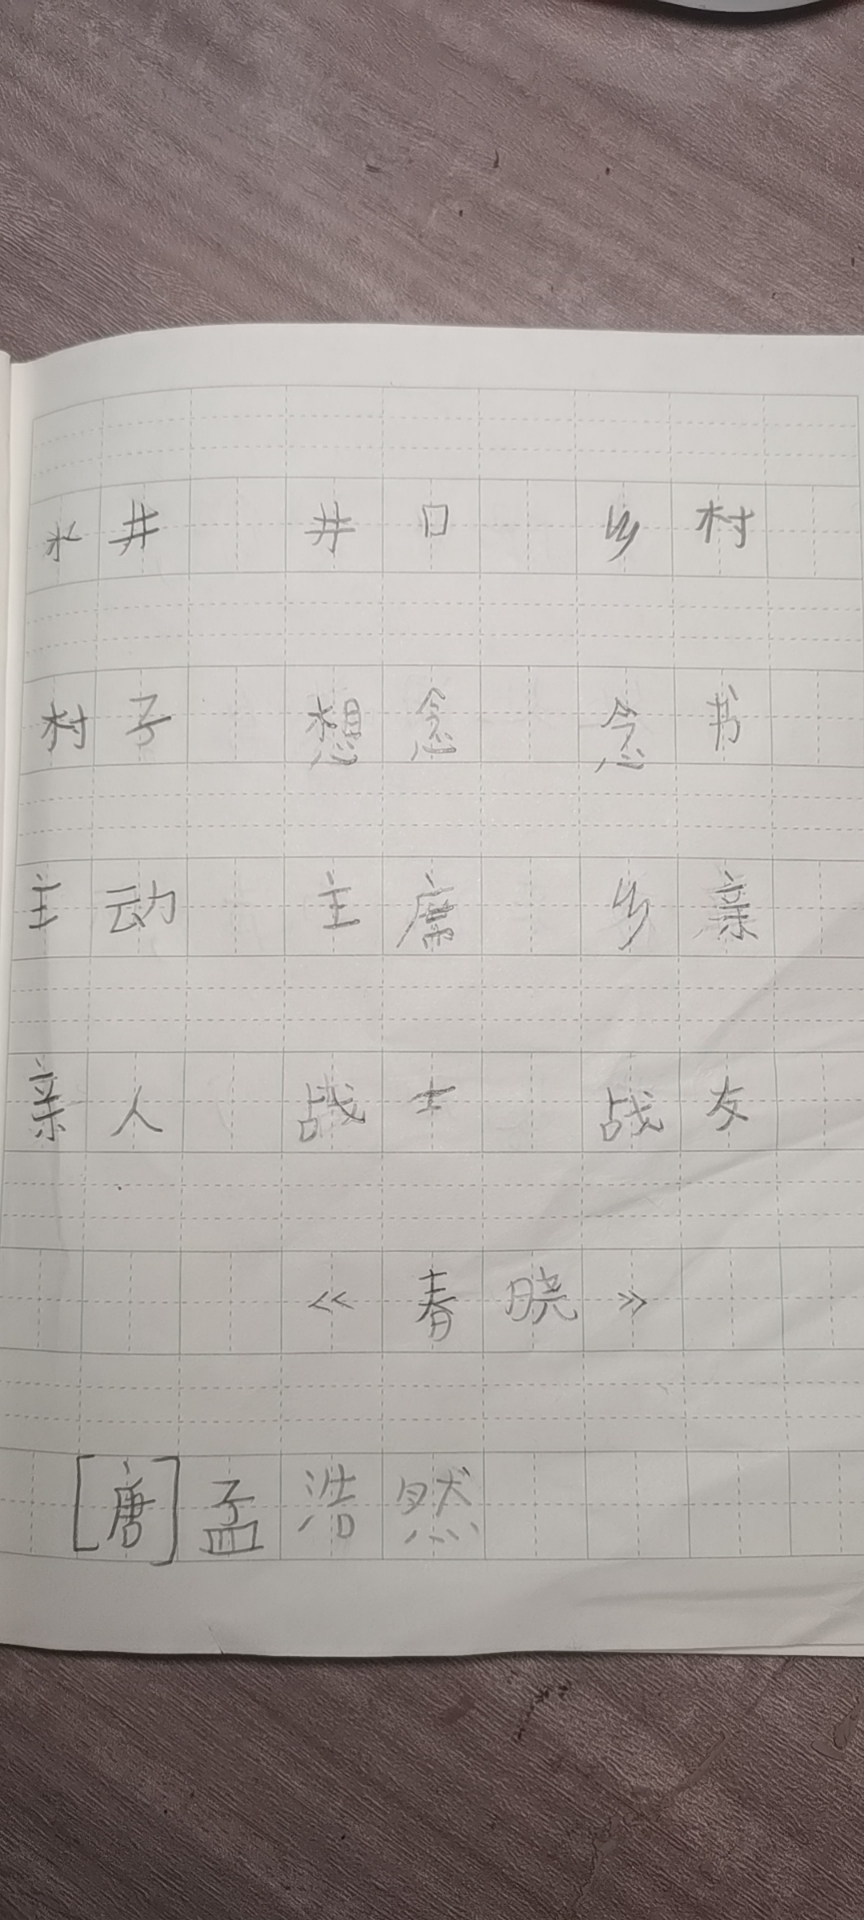 水井 井口 乡村
村子 想念 念书
主动 主席 乡亲
亲人 战士 战友
《春晓》
[唐]孟浩然